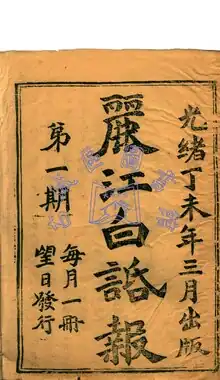 光緒丁未年三月出版
麗江白話報
第一期
每月一冊
望日發行